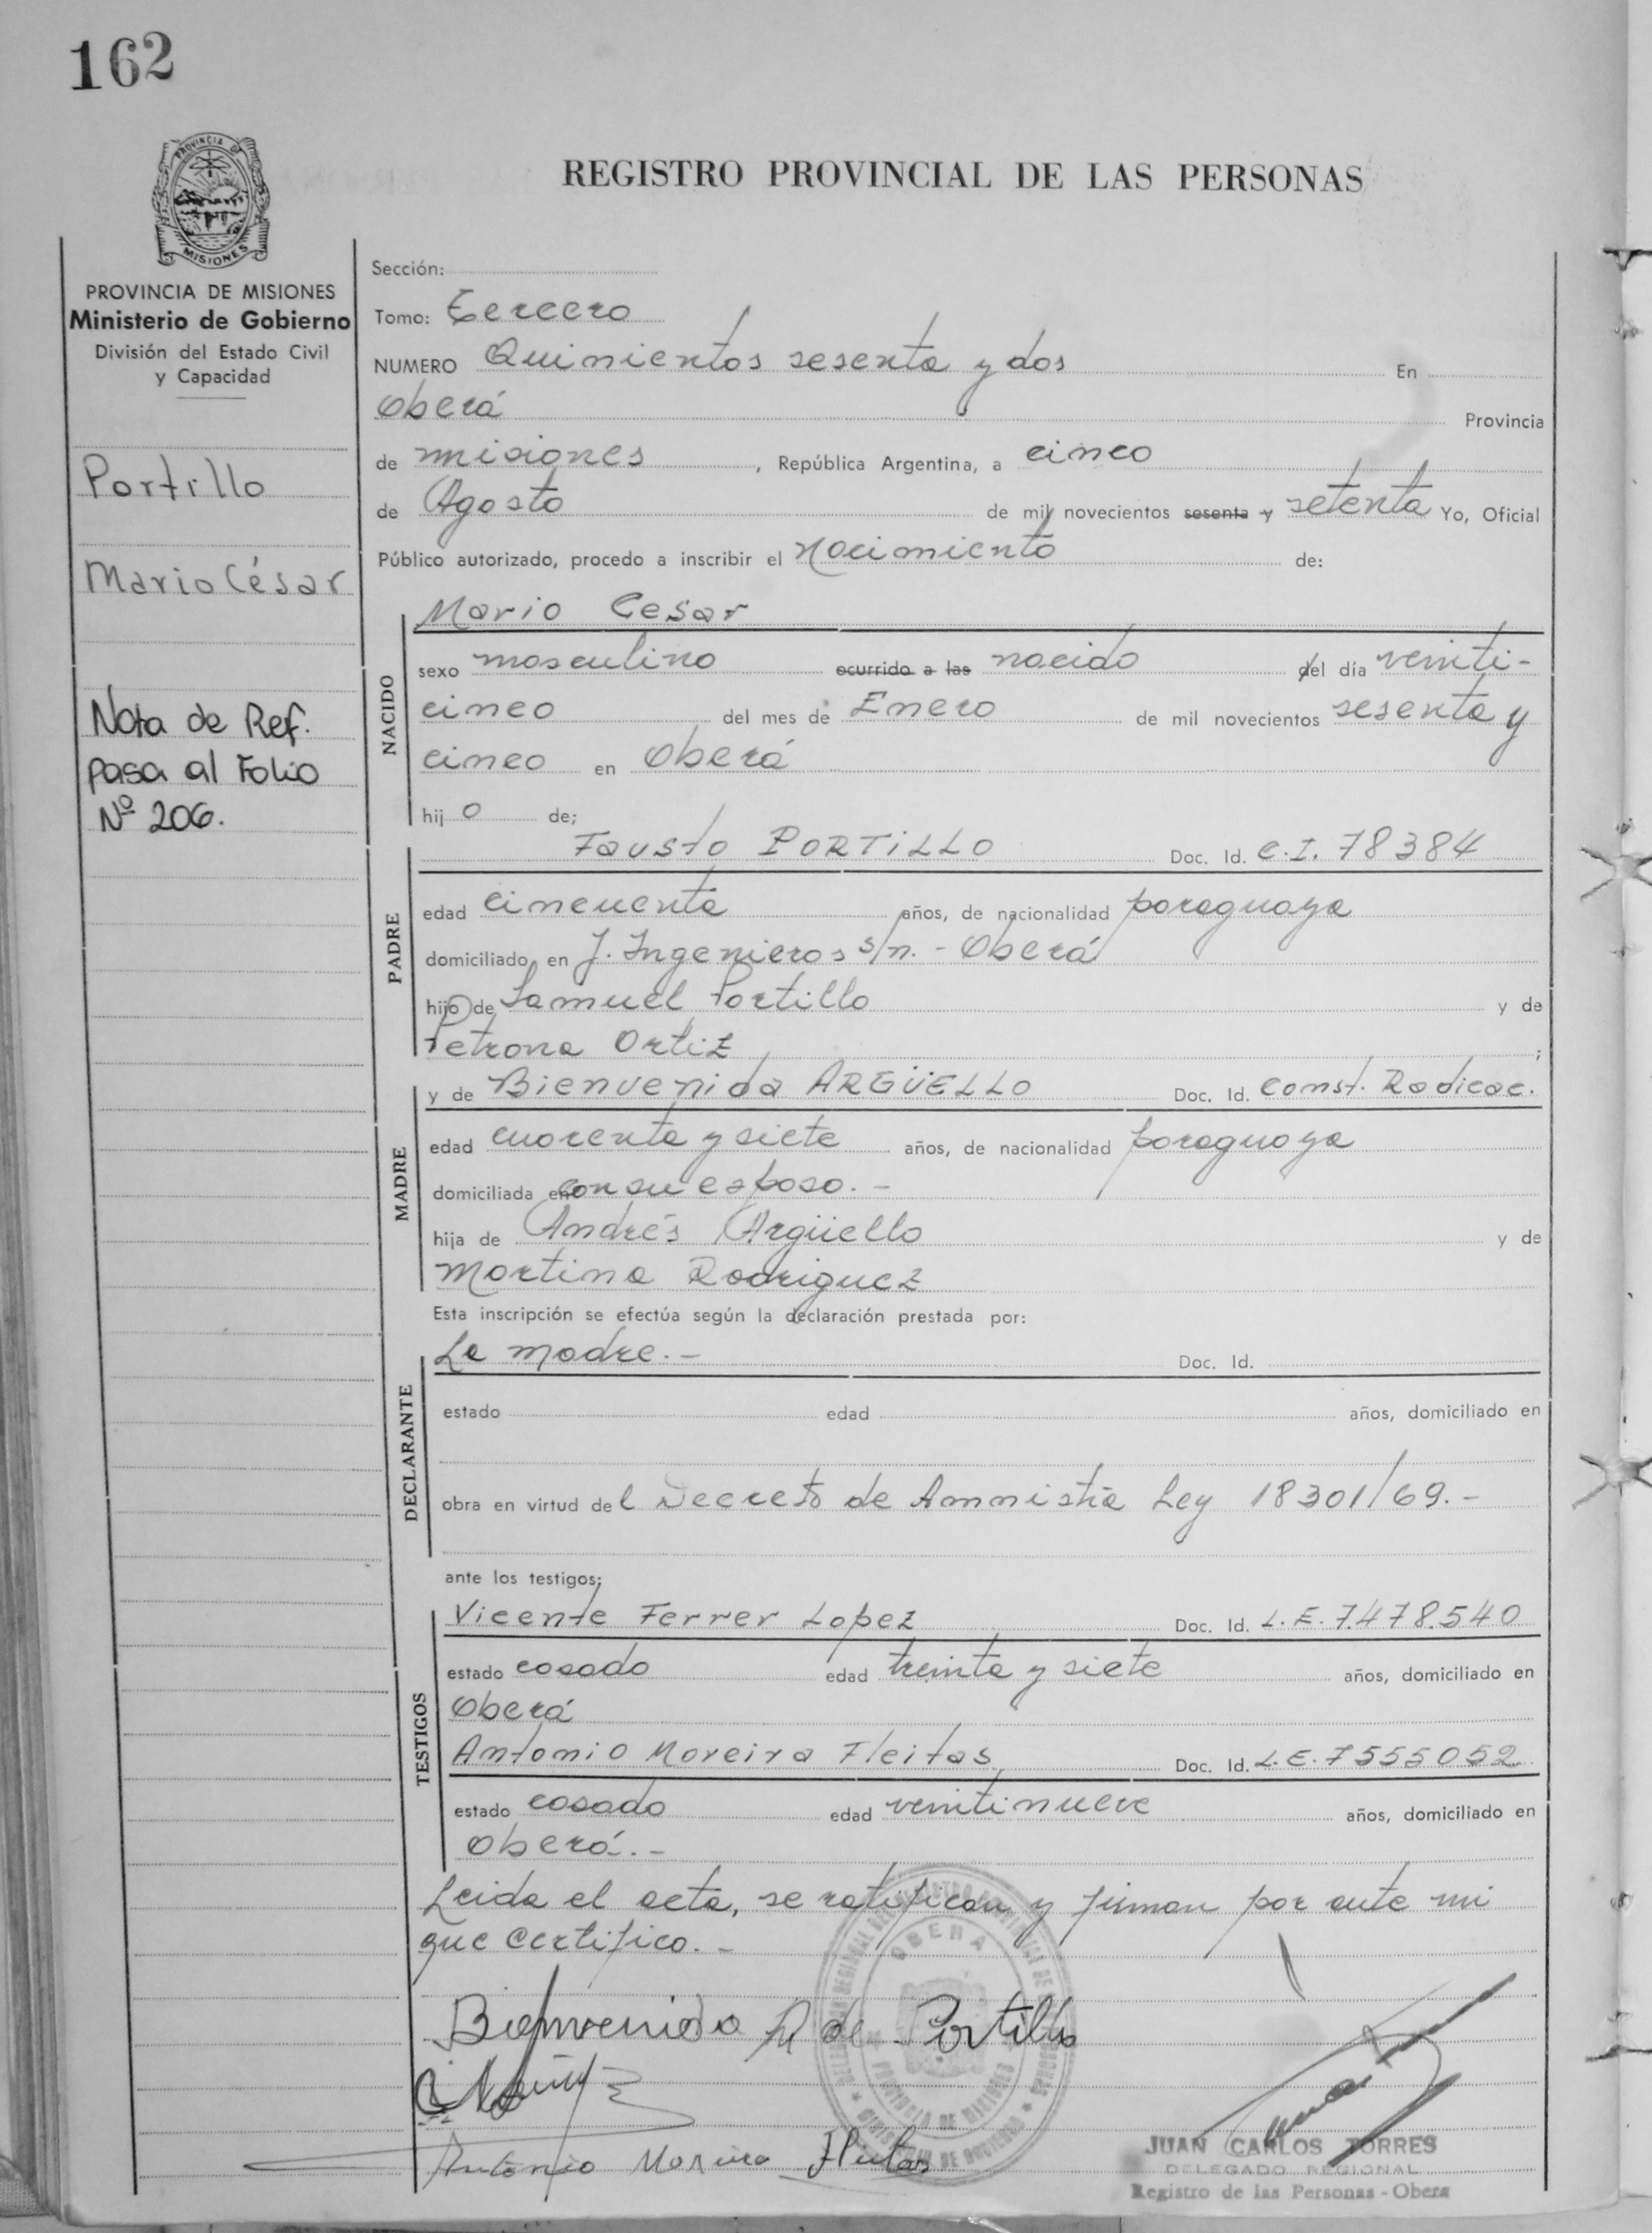 162
PROVINCIA DE
MISIONES
REGISTRO PROVINCIAL DE LAS PERSONAS
PROVINCIA DE MISIONES
Ministerio de Gobierno
División del Estado Civil
y Capacidad
Portillo
Mario César
Nota de Ref.
pasa al Folio
Nº 206.
Sección:
Tomo: tercero
NUMERO Quinientos sesenta y dos En
Oberá Provincia
de misiones, República Argentina, a cinco
de Agosto de mil novecientos sesenta y setenta Yo, Oficial
Público autorizado, procedo a inscribir el nacimiento de:
NACIDO
Mario Cesar
sexo masculino ocurrido a las nacido del día veinti-
cinco del mes de Enero de mil novecientos sesenta y
cinco en Oberá
hijo de;
PADRE
Fausto PORTILLO Doc. Id. C.I. 78384
edad cincuenta años, de nacionalidad paraguaya
domiciliado en J. Ingenieros s/n. - Oberá
hijo de Samuel Portillo y de
Petrona Ortiz ;
MADRE
y de Bienvenida ARGÜELLO Doc. Id. Const. Radicac.
edad cuarenta y siete años, de nacionalidad paraguaya
domiciliada en con su esposo. -
hija de Andrés Argüello y de
Martina Rodriguez
Esta inscripción se efectúa según la declaración prestada por:
DECLARANTE
La madre. - Doc. Id.
estado edad años, domiciliado en
obra en virtud del Decreto de Amnistía Ley 18301/69. -
ante los testigos;
TESTIGOS
Vicente Ferrer Lopez Doc. Id. L.E. 7.478.540
estado casado edad treinta y siete años, domiciliado en
Oberá
Antonio Moreira Fleitas Doc. Id. L.E. 7555052
estado casado edad veintinueve años, domiciliado en
Oberá. -
Leida el acta, se ratifican y firman por ante mi
que certifico. -
OBERA
PROVINCIA DE MISIONES
Bienvenida A de Portillo
Antonio Moreira Fleitas
JUAN CARLOS TORRES
DELEGADO REGIONAL
Registro de las Personas - Obera